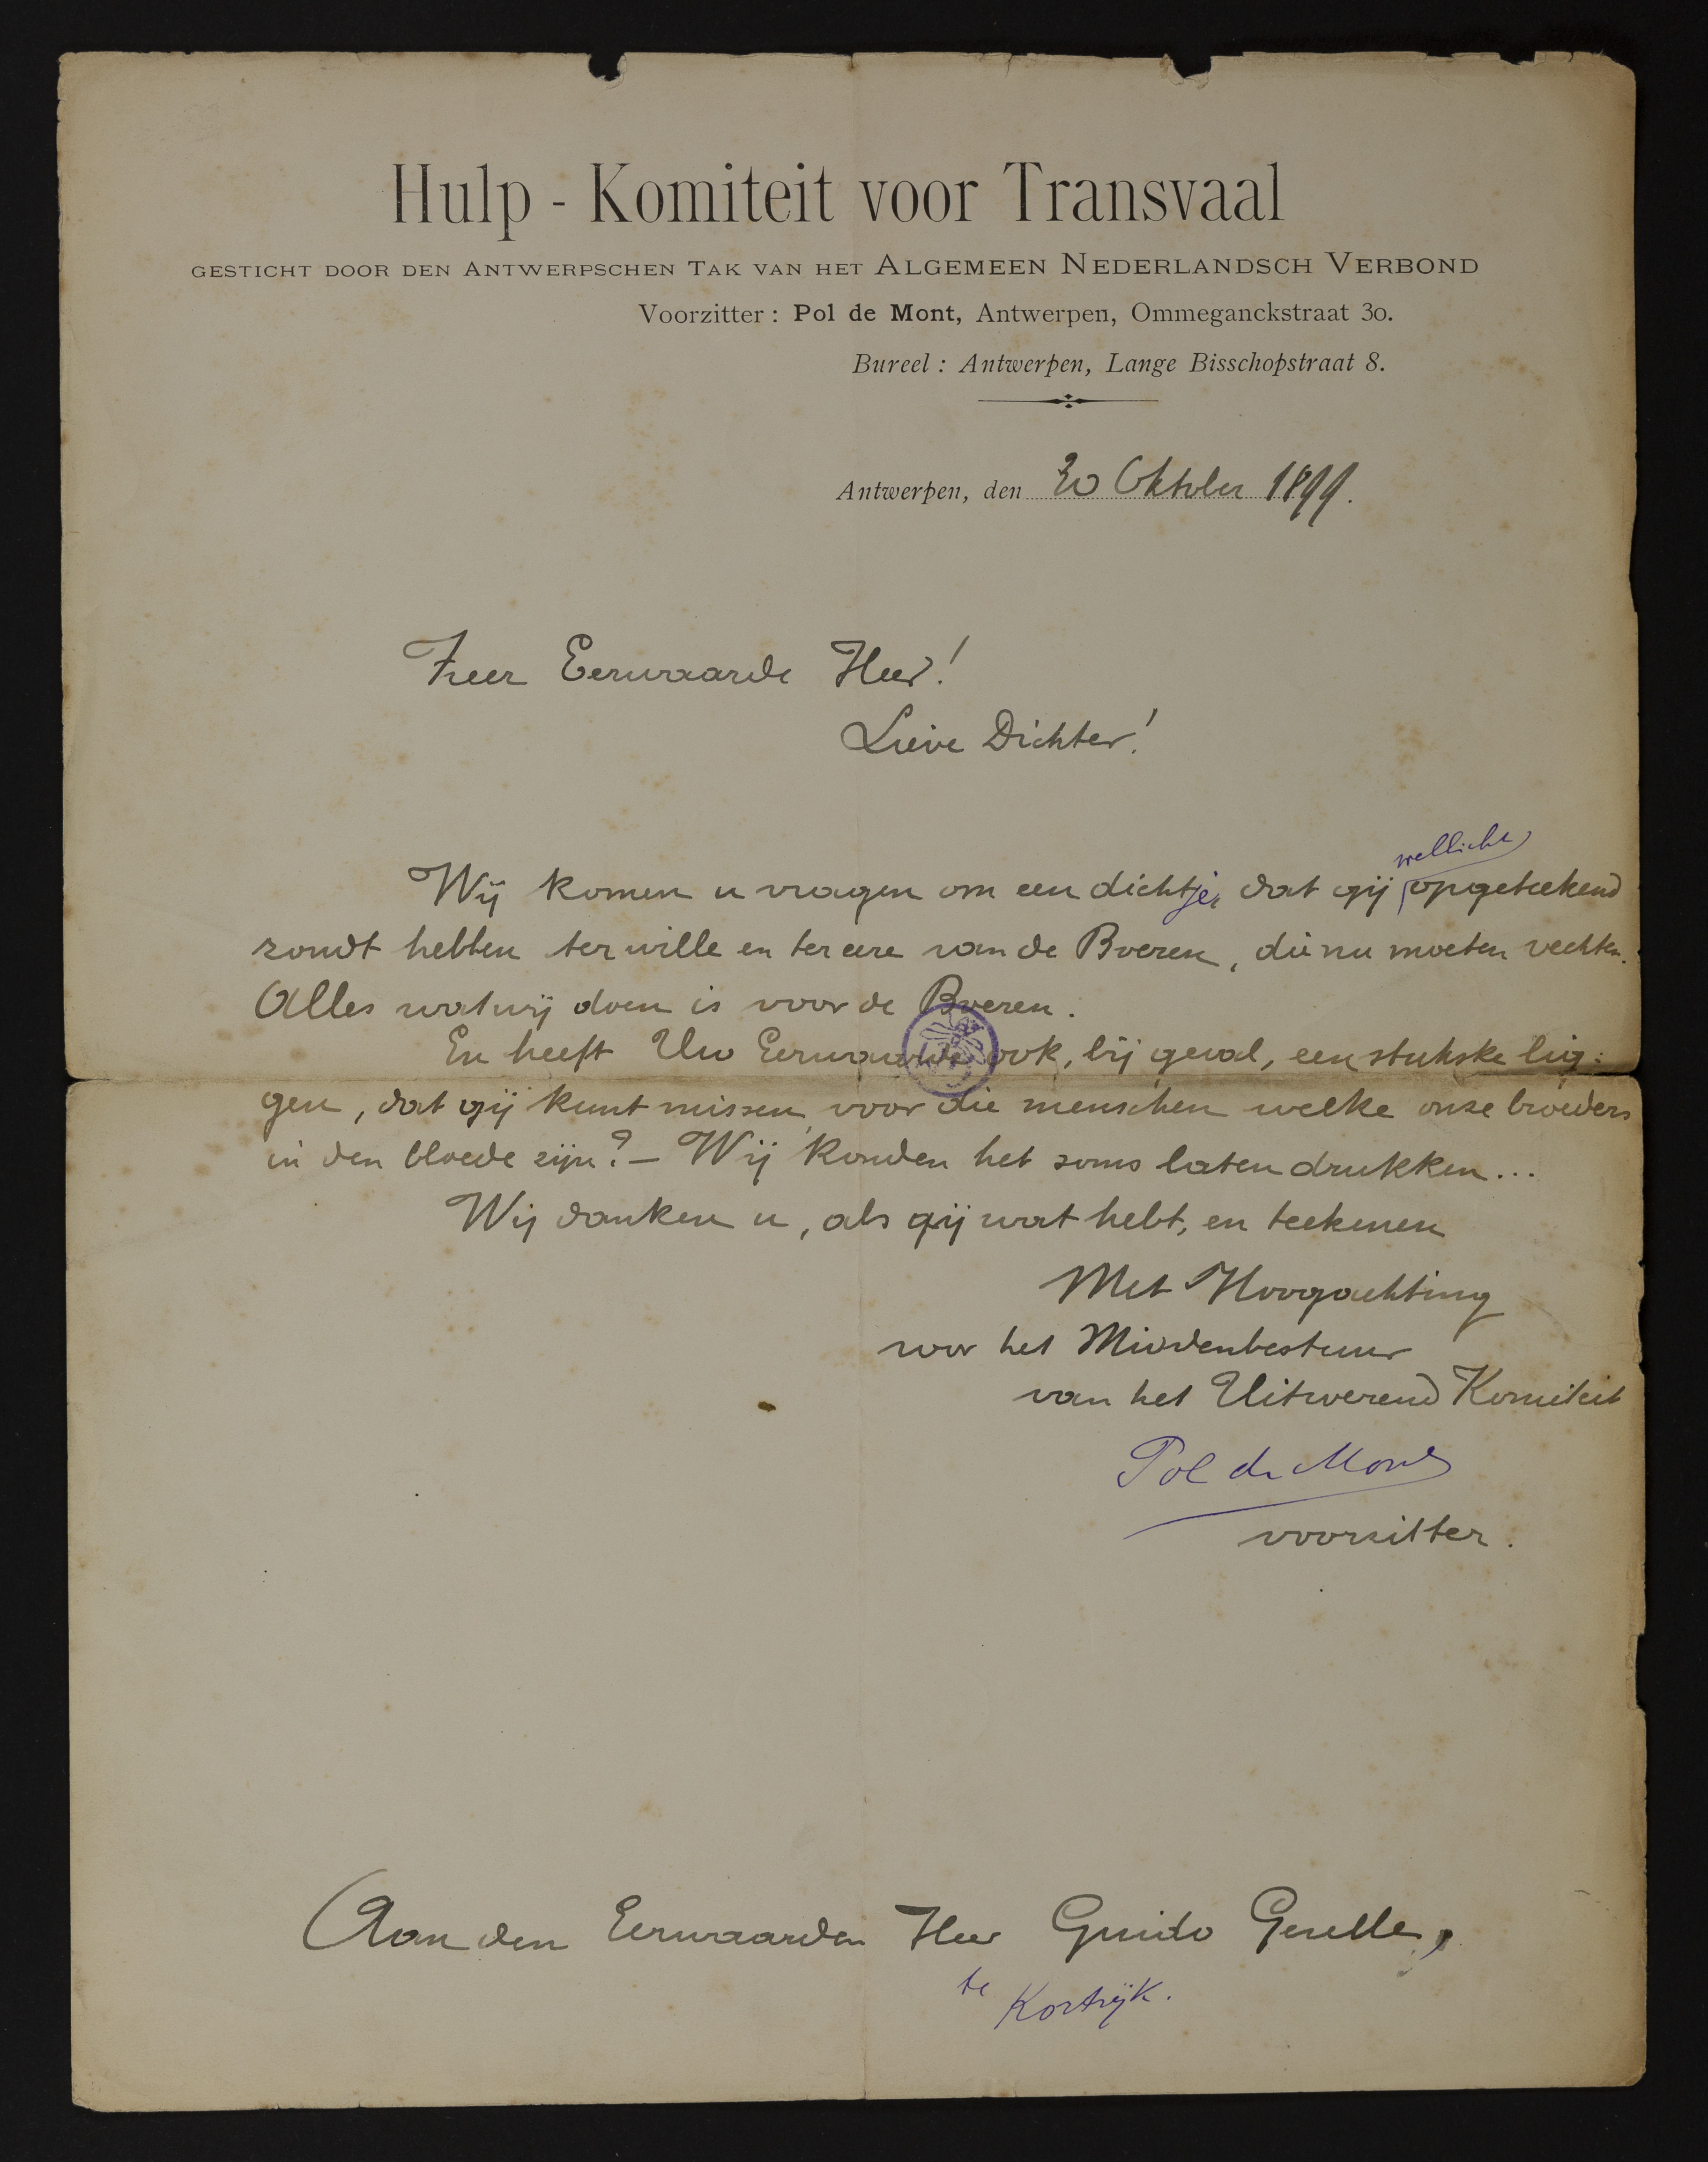 Hulp - Komiteit voor Transvaal
GESTICHT DOOR DEN ANTWERPSCHEN TAK VAN HET ALGEMEEN NEDERLANDSCH VERBOND
Voorzitter : Pol de Mont, Antwerpen, Ommeganckstraat 30.
Bureel : Antwerpen, Lange Bisschopstraat 8.
Antwerpen, den 20 Oktober 1899.
Zeer Eerwaarde Heer!
Lieve Dichter!
wellicht
Wij komen u vragen om een dichtje, dat gij opgeteekend
zoudt hebben ter wille en ter eere van de Boeren, die nu moeten vechten.
Alles wat wij doen is voor de Boeren.
En heeft Uw Eerwaarde ook, bij geval, een stukske lig-
gen, dat gij kunt missen voor die menschen welke onze broeders
in den bloede zijn? – Wij konden het soms laten drukken...
Wij danken u, als gij wat hebt, en teekenen
Met Hoogachting
voor het Middenbestuur
van het Uitwerend Komiteit
Pol de Mont
voorzitter.
Aan den Eerwaarden Heer Guido Gezelle,
te Kortrijk.